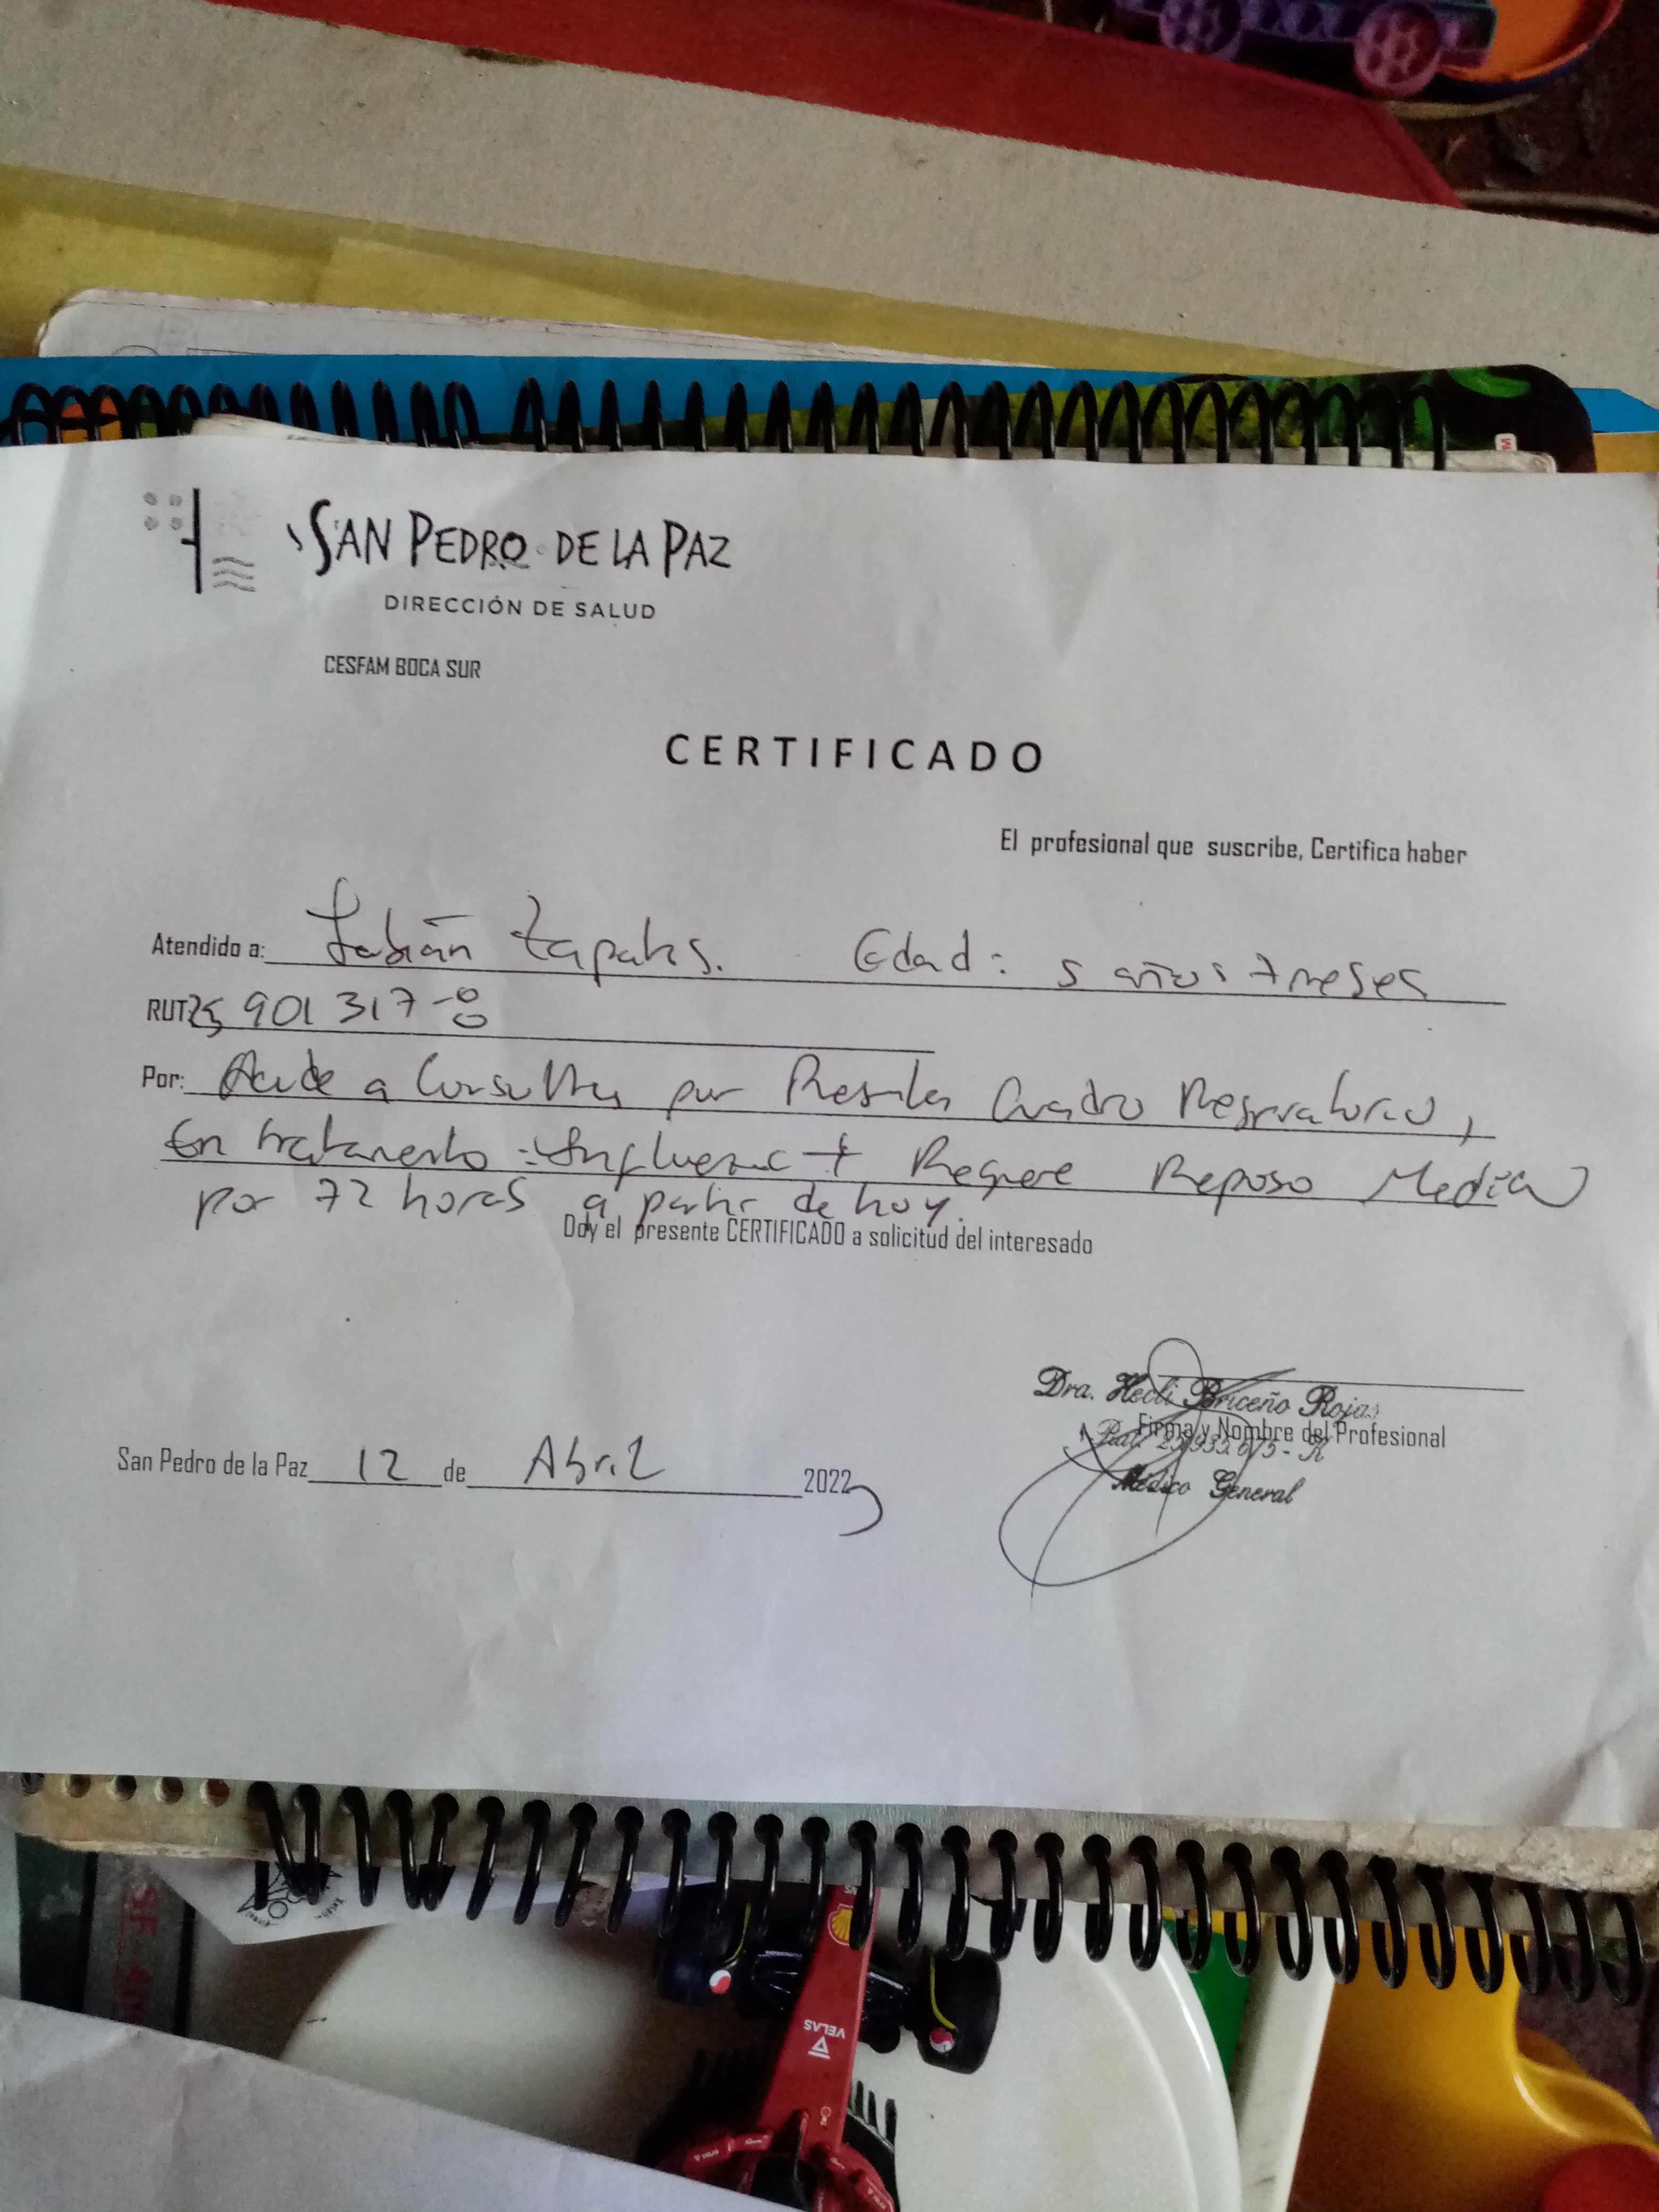 SAN PEDRO DE LA PAZ
DIRECCIÓN DE SALUD
CESFAM BOCA SUR
CERTIFICADO
El profesional que suscribe, Certifica haber
Atendido a: Fabián Edad: 5 años 7 meses
RUT 25 901 317-8
Por: Acude a Consulta por Presentar Cuadro Respiratorio,
En tratamiento: Influenza + Requiere Reposo Medico
por 72 horas a partir de hoy.
Doy el presente CERTIFICADO a solicitud del interesado
Dra. Hecli Briceño Rojas
Firma y Nombre del Profesional
Médico General
San Pedro de la Paz 12 de Abril 2022
VELAS